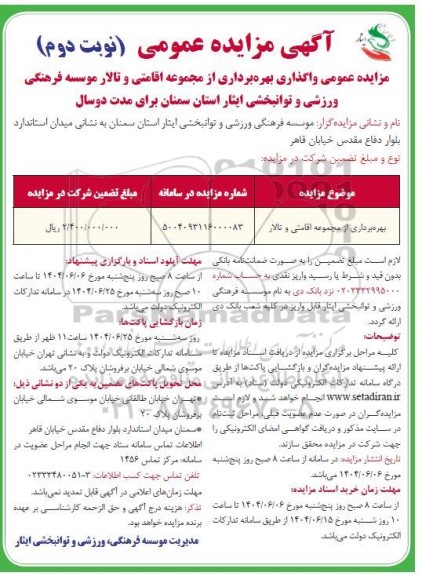 آگهی مزایده عمومی (نوبت دوم)
مزایده عمومی واگذاری بهره‌برداری از مجموعه اقامتی و تالار موسسه فرهنگی
ورزشی و توانبخشی ایثار استان سمنان برای مدت دوسال
نام و نشانی مزایده‌گزار: موسسه فرهنگی ورزشی و توانبخشی ایثار استان سمنان به نشانی میدان استاندارد
بلوار دفاع مقدس خیابان قاهر
نوع و مبلغ تضمین شرکت در مزایده:
موضوع مزایده شماره مزایده در سامانه مبلغ تضمین شرکت در مزایده
بهره‌برداری از مجموعه اقامتی و تالار ۵۰۰۴۰۹۳۱۱۶۰۰۰۰۸۳ ۲/۴۰۰/۰۰۰/۰۰۰ ریال
لازم است مبلغ تضمین را به صورت ضمانتنامه بانکی
بدون قید و شرط یا رسید واریز نقدی به حساب شماره
۰۲۰۳۳۳۲۹۹۵۰۰۰ نزد بانک دی به نام موسسه فرهنگی
ورزشی و توانبخشی ایثار قابل واریز در کلیه شعب بانک دی
ارائه گردد.
توضیحات:
کلیه مراحل برگزاری مزایده از دریافت اسناد مزایده تا
ارائه پیشنهاد مزایده‌گران و بازگشایی پاکت‌ها از طریق
درگاه سامانه تدارکات الکترونیکی دولت (ستاد) به آدرس
www.setadiran.ir انجام خواهد شد و لازم است
مزایده‌گران در صورت عدم عضویت قبلی، مراحل ثبت‌نام
در سایت مذکور و دریافت گواهی امضای الکترونیکی را
جهت شرکت در مزایده محقق سازند.
تاریخ انتشار مزایده: در سامانه از ساعت ۸ صبح روز پنج‌شنبه
مورخ ۱۴۰۴/۰۶/۰۶ می‌باشد.
مهلت زمان خرید اسناد مزایده:
از ساعت ۸ صبح روز پنج‌شنبه مورخ ۱۴۰۴/۰۶/۰۶ تا ساعت
۱۰ روز شنبه مورخ ۱۴۰۴/۰۶/۱۵ از طریق سامانه تدارکات
الکترونیک دولت می‌باشد.
مهلت آپلود اسناد و بارگزاری پیشنهاد:
از ساعت ۸ صبح روز پنج‌شنبه مورخ ۱۴۰۴/۰۶/۰۶ تا ساعت
۱۰ صبح روز سه‌شنبه مورخ ۱۴۰۴/۰۶/۲۵ در سامانه تدارکات
الکترونیک دولت می‌باشد.
زمان بازگشایی پاکت‌ها:
روز سه‌شنبه مورخ ۱۴۰۴/۰۶/۲۵ ساعت ۱۱ ظهر از طریق
سامانه تدارکات الکترونیک دولت و به نشانی تهران خیابان
موسوی شمالی خیابان برفروشان پلاک ۲۰ می‌باشد.
محل تحویل پاکت‌های تضمین به یکی از دو نشانی ذیل:
*تهران خیابان طالقانی خیابان موسوی شمالی خیابان
برفروشان پلاک ۲۰
*سمنان میدان استاندارد بلوار دفاع مقدس خیابان قاهر
اطلاعات تماس سامانه ستاد جهت انجام مراحل عضویت در
سامانه: مرکز تماس ۱۴۵۶
تلفن تماس جهت کسب اطلاعات: ۳-۰۲۳۳۳۴۸۰۰۵۱
مهلت زمان‌های اعلامی در آگهی قابل تمدید نمی‌باشد.
تذکر: هزینه درج آگهی و حق الزحمه کارشناسی بر عهده
برنده مزایده خواهد بود.
مدیریت موسسه فرهنگی، ورزشی و توانبخشی ایثار
ParsNamadData